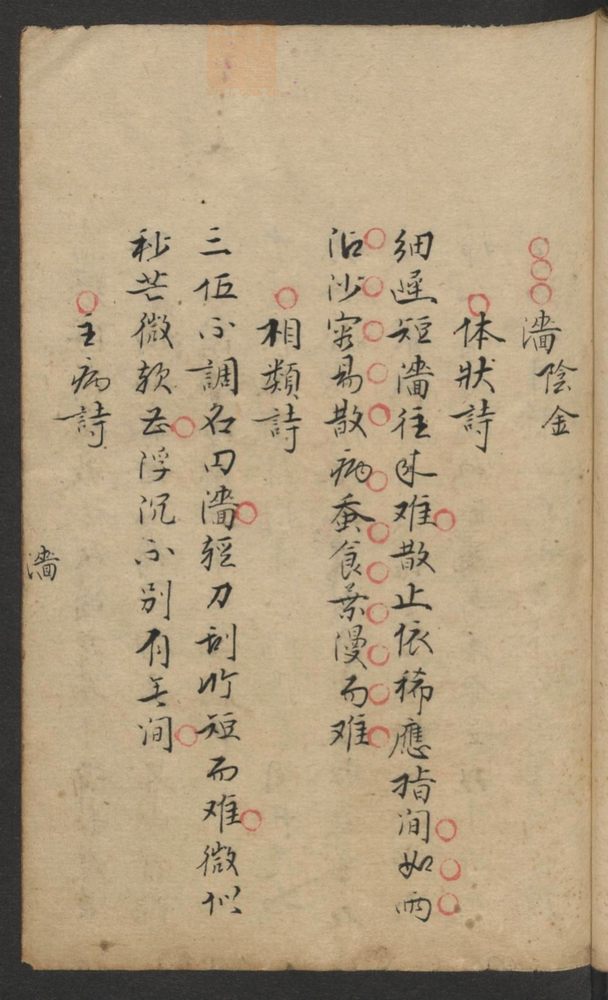 濇陰金
体狀詩
細遲短濇往来难散止依稀應指间如雨
沾沙容易散病蚕食葉漫而难
相類詩
三伍不調名曰濇軽刀刮竹短而难微似
秒芒微軟甚浮沉不别有无间
主病詩
濇